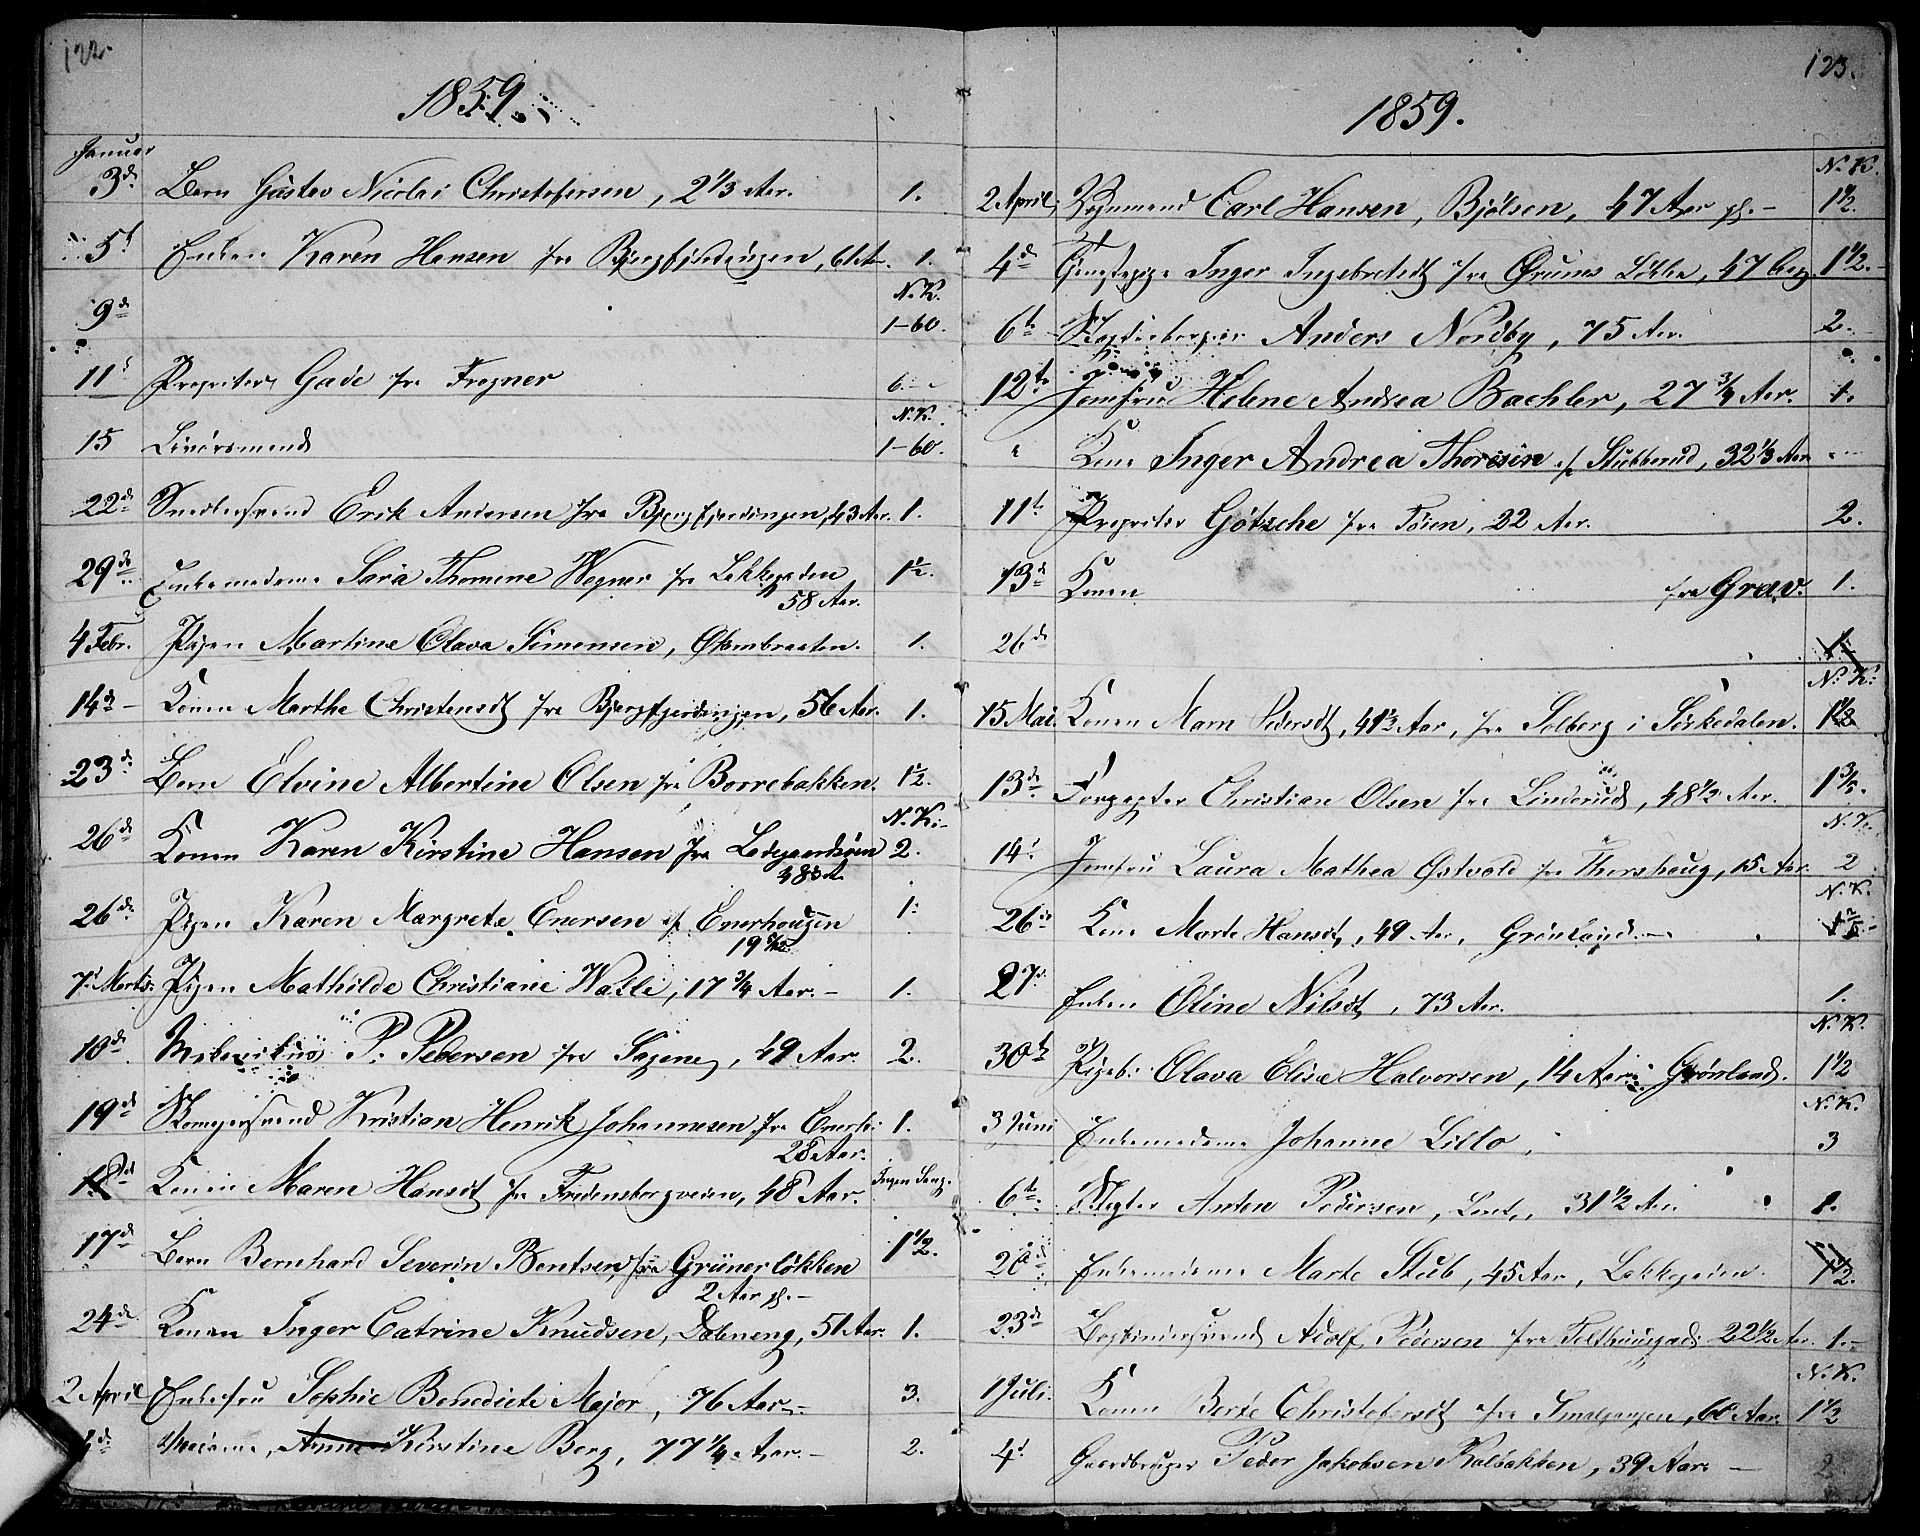 122.
1859.
Januar
3d. Barn Gustav Nicolai Christofersen, 2 1/3 Aar. 1.
5t Enken Karen Hansen fra Bjergfjerdingen, 61 Aar. 1.
N. K.
9de 1-60.
11t Propriter Gade fra Frogner 6.
N. K.
15 Livørsmand 1-60.
22de Snedkersvend Erik Andersen fra Bjergfjerdingen, 43 Aar. 1.
29de Enkemadame Sara Thomine Wegner fra Lakkegaden 1 1/2.
58 Aar.
4 Febr. Pigen Martine Olava Simensen, Ekambraaten. 1.
14de Konen Marthe Christensdt fra Bjergfjerdingen, 56 Aar. 1.
23de Barn Elvine Albertine Olsen fra Borrebakken. 1 1/2.
N. K.
26de Konen Karen Kirstine Hansen fra Ladegaardsøen 2.
26de Pigen Karen Margrete Enersen f Enerhougen 1.
7d Marts. Pigen Mathilde Christiane Walle, 17 3/4 Aar. 1.
10de P. Pedersen fra Sagene, 49 Aar. 2.
19de Kristian Henrik Johannesen fra Enerh: 1.
28 Aar.
18de Konen Maren Hansdt fra Fredensborgveien, 48 Aar. Ingen Sang.
17de Barn Bernhard Severin Bentsen, fra Grünerløkken 1 1/2.
2 Aar gl.
24de Konen Inger Catrine Knudsen, Dælneng, 51 Aar. 1.
2 April Enkefru Sophie Benedicte Major, 76 Aar. 3.
4de Madame, Anne Kirstine Berg, 77 1/4 Aar. 2.
123.
1859.
N. K.
2 April. Vognmand Carl Hansen, Bjølsen, 47 Aar gl. 1 1/2.
4de Tjenestepige Inger Ingebretsdt fra Ørums Løkke, 47 1 1/2.
6te Anders Nordby, 75 Aar. 2.
12te Jomfru Helene Andrea Bachler, 27 3/4 Aar. 1.
" Kone Inger Andrea Thoresen f Stubberud, 32 1/3 Aar
11te Propriter Götzche fra Tøien, 22 Aar. 2.
13de Konen fra Grav. 1.
26de 1.
N. K.
15 Mai. Konen Maren Pedersdt, 41 1/2 Aar, fra Solberg i Sørkedalen. 1 1/2
13de Forpagter Christian Olsen fra Linderud, 48 1/2 Aar.
N. K.
14d Jomfru Laura Mathea Østvold fra Thorshoug, 15 Aar. 2
N. K.
26de Kone Marte Hansdt, 49 Aar, Grønland.
27d. Enken Oline Nilsdt, 73 Aar. 1.
N. K.
30te Pigeb: Olava Elise Halvorsen, 14 Aar: Grønland. 1 1/2
N. K.
3 Juni Enkemadame Johanne Lillo, 3
6te Slagter Anton Pedersen, 31 1/2 Aar. 1.
20de Enkemadame Marte Stub, 45 Aar, Lakkegaden. 1 1/2.
23de Bogbindersvend Adolf Pedersen fra Tolthuusgad: 22 1/2 Aar. 1.
N. K.
1 Juli. Konen Berte Christofersdt fra Smalgangen, 60 Aar. 1 1/2
4d Gaardbruger Peder Jakobsen Kalbakken, 39 Aar. 2